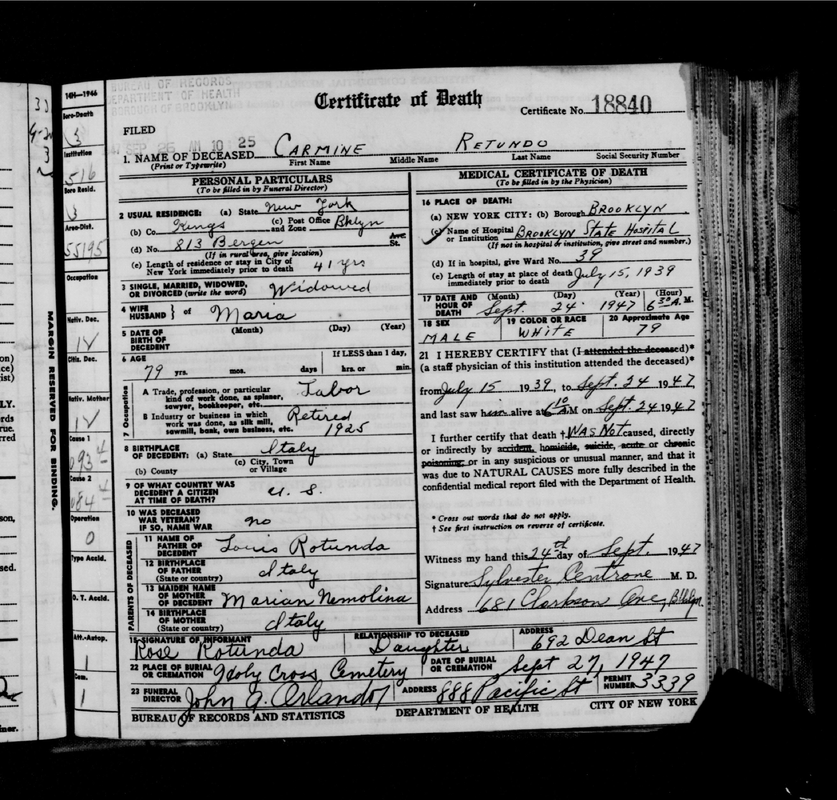 14H—1946
BUREAU OF RECORDS
DEPARTMENT OF HEALTH
BOROUGH OF BROOKLYN
Certificate of Death
Certificate No. 18840
FILED
SEP 26 AM 10 25
1. NAME OF DECEASED CARMINE RETUNDO
(Print or Typewrite) First Name Middle Name Last Name Social Security Number
PERSONAL PARTICULARS
(To be filled in by Funeral Director)
2 USUAL RESIDENCE: (a) State New York
(b) Co. Kings (c) Post Office and Zone Bklyn
(d) No. 813 Bergen Ave. St.
(If in rural area, give location)
(e) Length of residence or stay in City of New York immediately prior to death 41 yrs
3 SINGLE, MARRIED, WIDOWED, OR DIVORCED (write the word) Widowed
4 WIFE HUSBAND } of Maria
5 DATE OF BIRTH OF DECEDENT (Month) (Day) (Year)
6 AGE If LESS than 1 day,
79 yrs. mos. days hrs. or min.
7 Occupation
A Trade, profession, or particular kind of work done, as spinner, sawyer, bookkeeper, etc. Labor
B Industry or business in which work was done, as silk mill, sawmill, bank, own business, etc. Retired 1925
8 BIRTHPLACE OF DECEDENT: (a) State Italy
(c) City, Town or Village
(b) County
9 OF WHAT COUNTRY WAS DECEDENT A CITIZEN AT TIME OF DEATH? U. S.
10 WAS DECEASED WAR VETERAN? IF SO, NAME WAR no
PARENTS OF DECEASED
11 NAME OF FATHER OF DECEDENT Louis Rotunda
12 BIRTHPLACE OF FATHER (State or country) Italy
13 MAIDEN NAME OF MOTHER OF DECEDENT Marian Nemolina
14 BIRTHPLACE OF MOTHER (State or country) Italy
MEDICAL CERTIFICATE OF DEATH
(To be filled in by the Physician)
16 PLACE OF DEATH:
(a) NEW YORK CITY: (b) Borough BROOKLYN
(c) Name of Hospital or Institution BROOKLYN STATE HOSPITAL
(If not in hospital or institution, give street and number.)
(d) If in hospital, give Ward No. 39
(e) Length of stay at place of death immediately prior to death July 15, 1939
17 DATE AND HOUR OF DEATH (Month) (Day) (Year) (Hour)
Sept. 24 1947 6 30 A. M.
18 SEX MALE 19 COLOR OR RACE WHITE 20 Approximate Age 79
21 I HEREBY CERTIFY that (I attended the deceased)*
(a staff physician of this institution attended the deceased)*
from July 15 1939, to Sept. 24 1947
and last saw him alive at 6 10 A M on Sept. 24 1947
I further certify that death † WAS NOT caused, directly
or indirectly by accident, homicide, suicide, acute or chronic
poisoning, or in any suspicious or unusual manner, and that it
was due to NATURAL CAUSES more fully described in the
confidential medical report filed with the Department of Health.
* Cross out words that do not apply.
† See first instruction on reverse of certificate.
Witness my hand this 24th day of Sept. 1947
Signature Sylvester Centrone M. D.
Address 681 Clarkson Ave, Bklyn
15 SIGNATURE OF INFORMANT RELATIONSHIP TO DECEASED ADDRESS
Rose Rotunda Daughter 692 Dean St
22 PLACE OF BURIAL OR CREMATION Holy Cross Cemetery DATE OF BURIAL OR CREMATION Sept 27, 1947
23 FUNERAL DIRECTOR John A. Orlando ADDRESS 888 Pacific St PERMIT NUMBER 3339
BUREAU OF RECORDS AND STATISTICS DEPARTMENT OF HEALTH CITY OF NEW YORK
MARGIN RESERVED FOR BINDING.
Boro-Death
3
Institution
516
Boro Resid.
3
Area-Dist.
55195
Occupation
Nativ. Dec.
IV
Citiz. Dec.
Nativ. Mother
IV
Cause 1
093 4
Cause 2
084 4
Operation
0
Type Accid.
O. T. Accid.
Att.-Autop.
1
Cem.
1